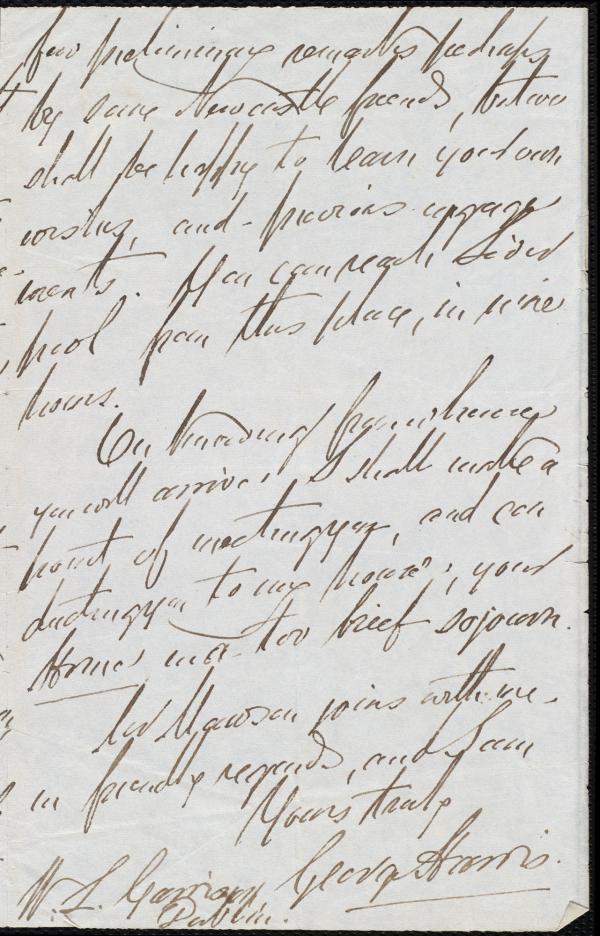 few preliminary remarks perhaps
by some Newcastle friends, but we
shall be happy to learn your own
wishes, and previous engage
ments. You can reach Liver
pool from this place, in nine
hours.
On knowing from whence
you will arrive, I shall make a
point of meeting you, and con
ducting you to my house, your
Home in a too brief sojourn.
Mrs Mawson joins with me
in friendly regards, and I am
Yours truly
George Harris.
W. L. Garrison
Dublin.